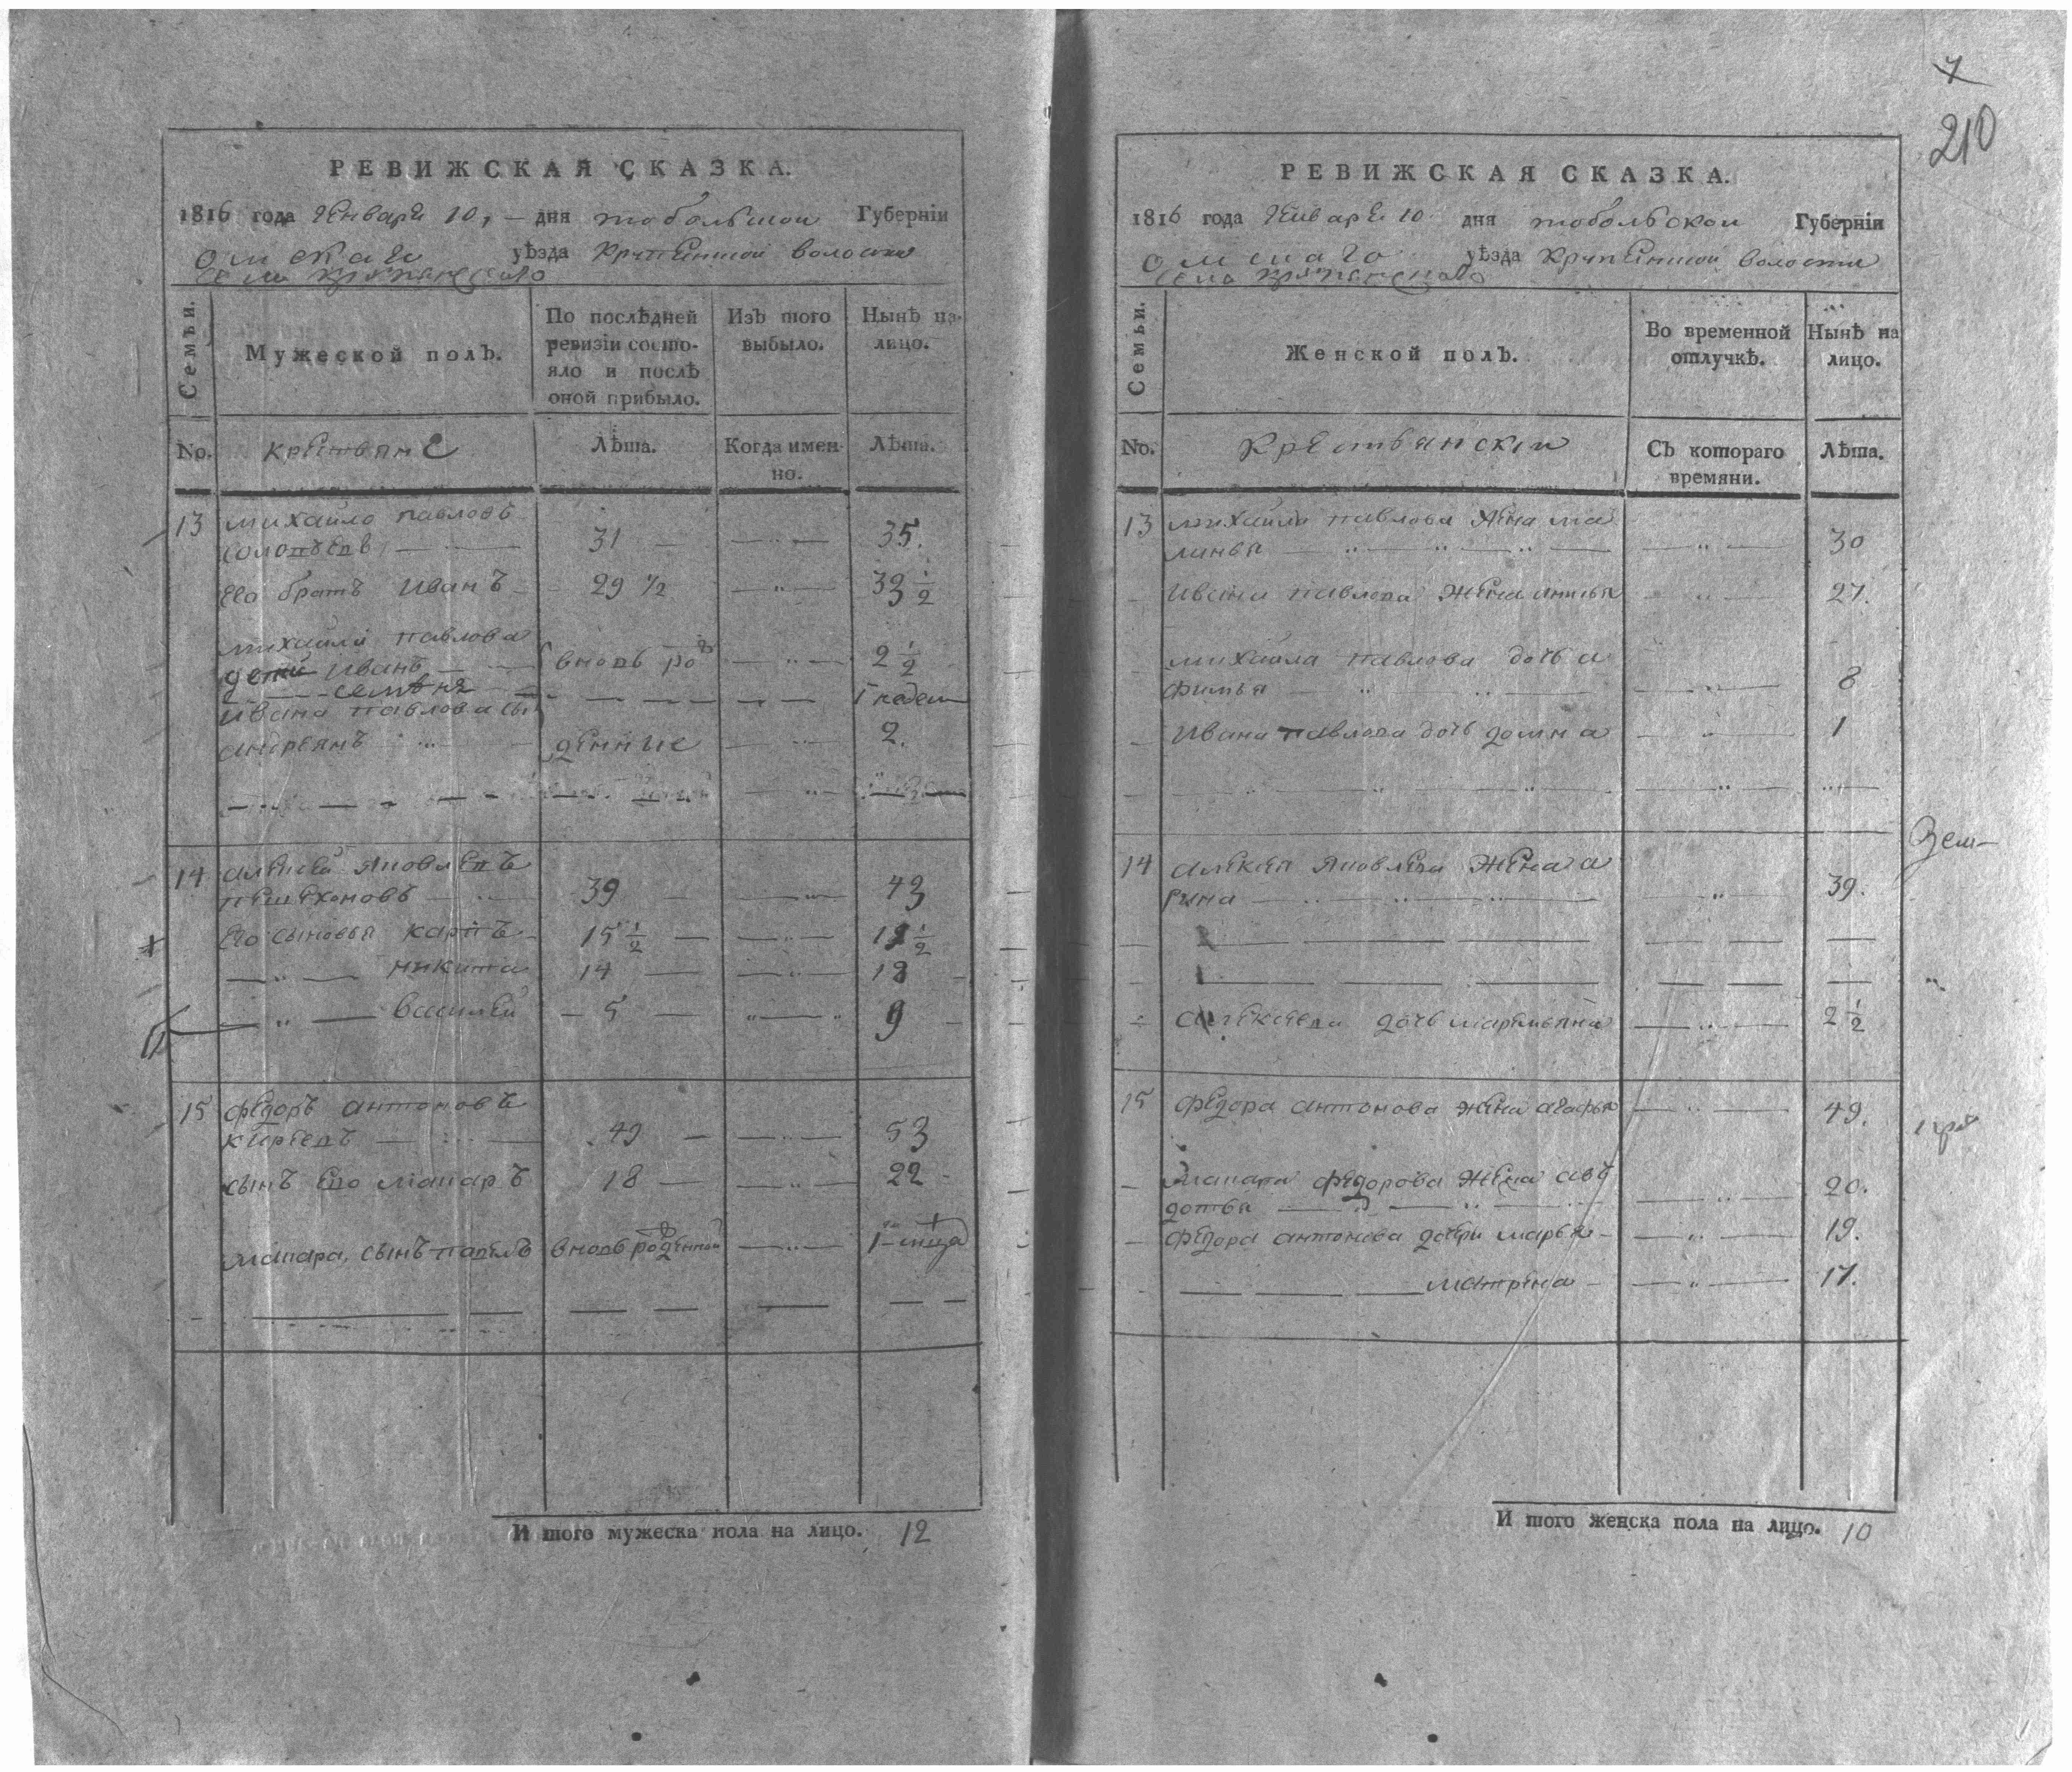 РЕВИЖСКАЯ СКАЗКА.
1816 года Генваря 10, – дня тобольской Губернїи
омскаго уѣзда Крупенской волости
села
Семьи.
Мужеской полъ.
По послѣдней ревизїи состояло и послѣ оной прибыло.
Изъ того выбыло.
Нынѣ на лицо.
No. крестьяне
Лѣта.
Когда именно.
Лѣта.
13 михайло павловъ
соловьевъ 31 35.
Его братъ иванъ 29 1/2 33 1/2
михайла павлова
дети иванъ вновь ро 2 1/2
семенъ 1 недел
ивана павлова сынъ
андреянъ денные 2.
14 алексей яковлевъ
пешехоновъ 39 43
Его сыновья карпъ 15 1/2 19 1/2
никита 14 18
василей 5 9
15 федоръ антоновъ
киревъ 49 53
сынъ его макаръ 18 22
макара сынъ павелъ вновь рожденной
И того мужеска пола на лицо. 12
7
210
РЕВИЖСКАЯ СКАЗКА.
1816 года Генваря 10 дня тобольской Губернїи
омскаго уѣзда Крупенской волости
села
Семьи.
Женской полъ.
Во временной отлучкѣ.
Нынѣ на лицо.
No. Крестьянскїи
Съ котораго времяни.
Лѣта.
13 михайла павлова жена ма
линья 30
ивана павлова жена анисья 27.
михайла павлова дочь а
фимья 8
ивана павлова дочь домна 1
14 алексея яковлева жена а
рина 39.
алексеева дочь маремьяна 2 1/2
15 федора антонова жена агафья 49.
макара федорова жена авъ
дотья 20.
федора антонова дочери марья 19.
матрена 17.
И того женска пола на лицо. 10